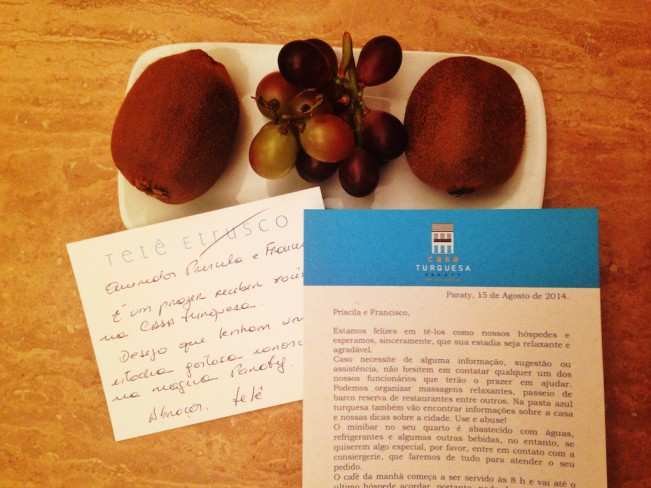 Tetê Etrusco
Queridos Priscila e Franci
É um prazer receber vocês
na Casa Turquesa.
Desejo que tenham um
estadia gostosa
na mágica Paraty.
Abraços. Tetê
casa
TURQUESA
PARATY
Paraty, 15 de Agosto de 2014.
Priscila e Francisco,
Estamos felizes em tê-los como nossos hóspedes e
esperamos, sinceramente, que sua estadia seja relaxante e
agradável.
Caso necessite de alguma informação, sugestão ou
assistência, não hesitem em contatar qualquer um dos
nossos funcionários que terão o prazer em ajudar.
Podemos organizar massagens relaxantes, passeio de
barco reserva de restaurantes entre outros. Na pasta azul
turquesa também vão encontrar informações sobre a casa
e nossas dicas sobre a cidade. Use e abuse!
O minibar no seu quarto é abastecido com águas,
refrigerantes e algumas outras bebidas, no entanto, se
quiserem algo especial, por favor, entre em contato com a
consiergerie, que faremos de tudo para atender o seu
pedido.
O café da manhã começa a ser servido às 8 h e vai até o
último hóspede acordar, portanto,